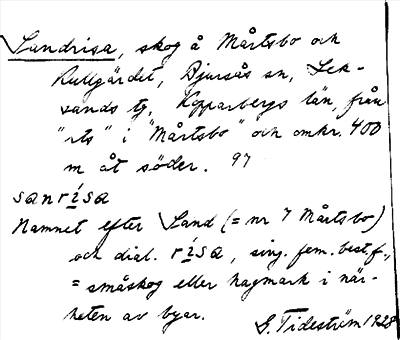 Sandrisa, skog å Mårtsbo och
Kullgärdet, Bjursås sn, Lek-
sands tg, Kopparbergs län, från
"rts" i "Mårtsbo" och omkr. 400
m åt söder. 97
sanrísa
Namnet efter Sand (= nr 7 Mårtsbo)
och dial. rísa, sing. fem. best. f.,
= småskog eller hagmark i när-
heten av byar.
G. Tideström 1928